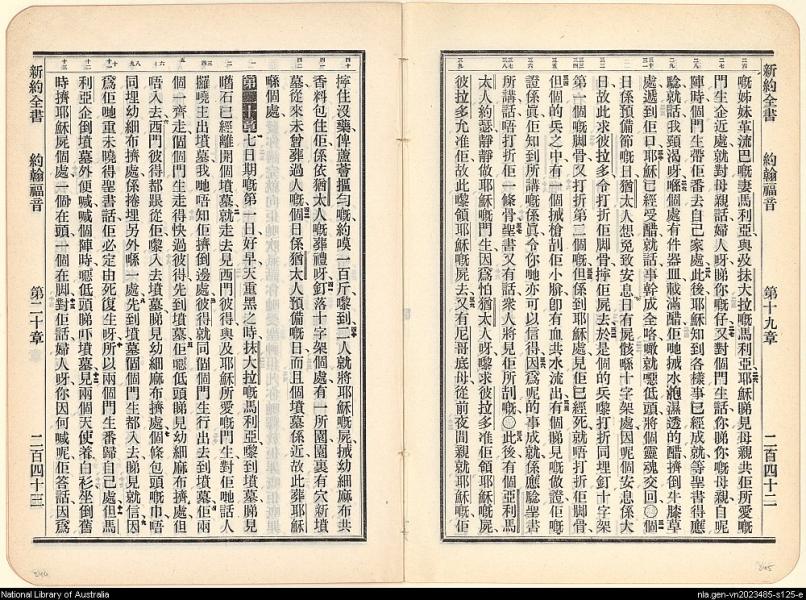 新約全書 約翰福音 第十九章 二百四十二
嘅姊妹革流巴嘅妻馬利亞與及抹大拉嘅馬利亞耶穌睇見母親共佢所愛嘅
門生企近處就對母親話婦人呀睇你嘅仔又對個門生話你睇你嘅母親自呢
陣時個門生帶佢番去自己家處此後耶穌知到各樣事已經成就等聖書得應
騐就話我頸渴呀喺個處有件器皿載滿醋佢哋搣水泡濕透的醋擠倒牛膝草
處遞到佢口耶穌已經受醋就話事幹成全咯嗽就嗯低頭將個靈魂交回〇個
日係預備節嘅日猶太人想免致安息日有屍骸喺十字架處因呢個安息係大
日故此求彼拉多令打折佢脚骨擰佢屍去於是個的兵嚟打折同埋釘十字架
第一個嘅脚骨又打折第二個嘅但係到耶穌處見佢已經死就唔打折佢脚骨
但個的兵之中有一個搣槍刮佢小腋卽有血共水流出有個睇見嘅做證佢嘅
證係眞佢知到所講嘅係眞令你哋亦可以信得因爲呢的事成就係應騐聖書
所講話唔打折佢一條骨聖書又有話衆人將見佢所刮嘅〇此後有個亞利馬
太人約瑟靜靜做耶穌嘅門生因爲怕猶太人呀嚟求彼拉多准佢領耶穌嘅屍
彼拉多允准佢故此嚟領耶穌嘅屍去又有尼哥底母從前夜間親就耶穌嘅佢
擰住沒藥俾蘆薈搵勻嘅約嘆一百斤嚟到二人就將耶穌嘅屍搣幼細麻布共
香料包住佢係依猶太人嘅葬禮呀釘落十字架個處有一所園園裏有穴新墳
墓從來未曾葬過人嘅個日係猶太人預備嘅日而且個墳墓係近故此葬耶穌
喺個處
第二十章 七日期嘅第一日好早天重黑之時抹大拉嘅馬利亞嚟到墳墓睇見
嗰石已經離開個墳墓就走去見西門彼得與及耶穌所愛嘅門生對佢哋話人
攞嘵主出墳墓我哋唔知佢擠倒邊處彼得就同個個門生行出去到墳墓佢兩
個一齊走個個門生走得快過彼得先到墳墓佢嗯低頭睇見幼細麻布擠處但
唔入去西門彼得都跟從佢嚟入去墳墓睇見幼細麻布擠處個條包頭嘅巾唔
同埋幼細麻布擠處係捲埋另外喺一處先到墳墓個個門生都入去睇見就信因
爲佢哋重未曉得聖書話佢必定由死復生呀所以兩個門生番歸自己處但馬
利亞企倒墳墓外便喊喊個陣時嗯低頭睇吓墳墓見兩個天使着白衫坐倒舊
時擠耶穌屍個處一個在頭一個在脚對佢話婦人呀你因何喊呢佢答話因爲
新約全書 約翰福音 第二十章 二百四十三
National Library of Australia
nla.gen-vn2023485-s125-e